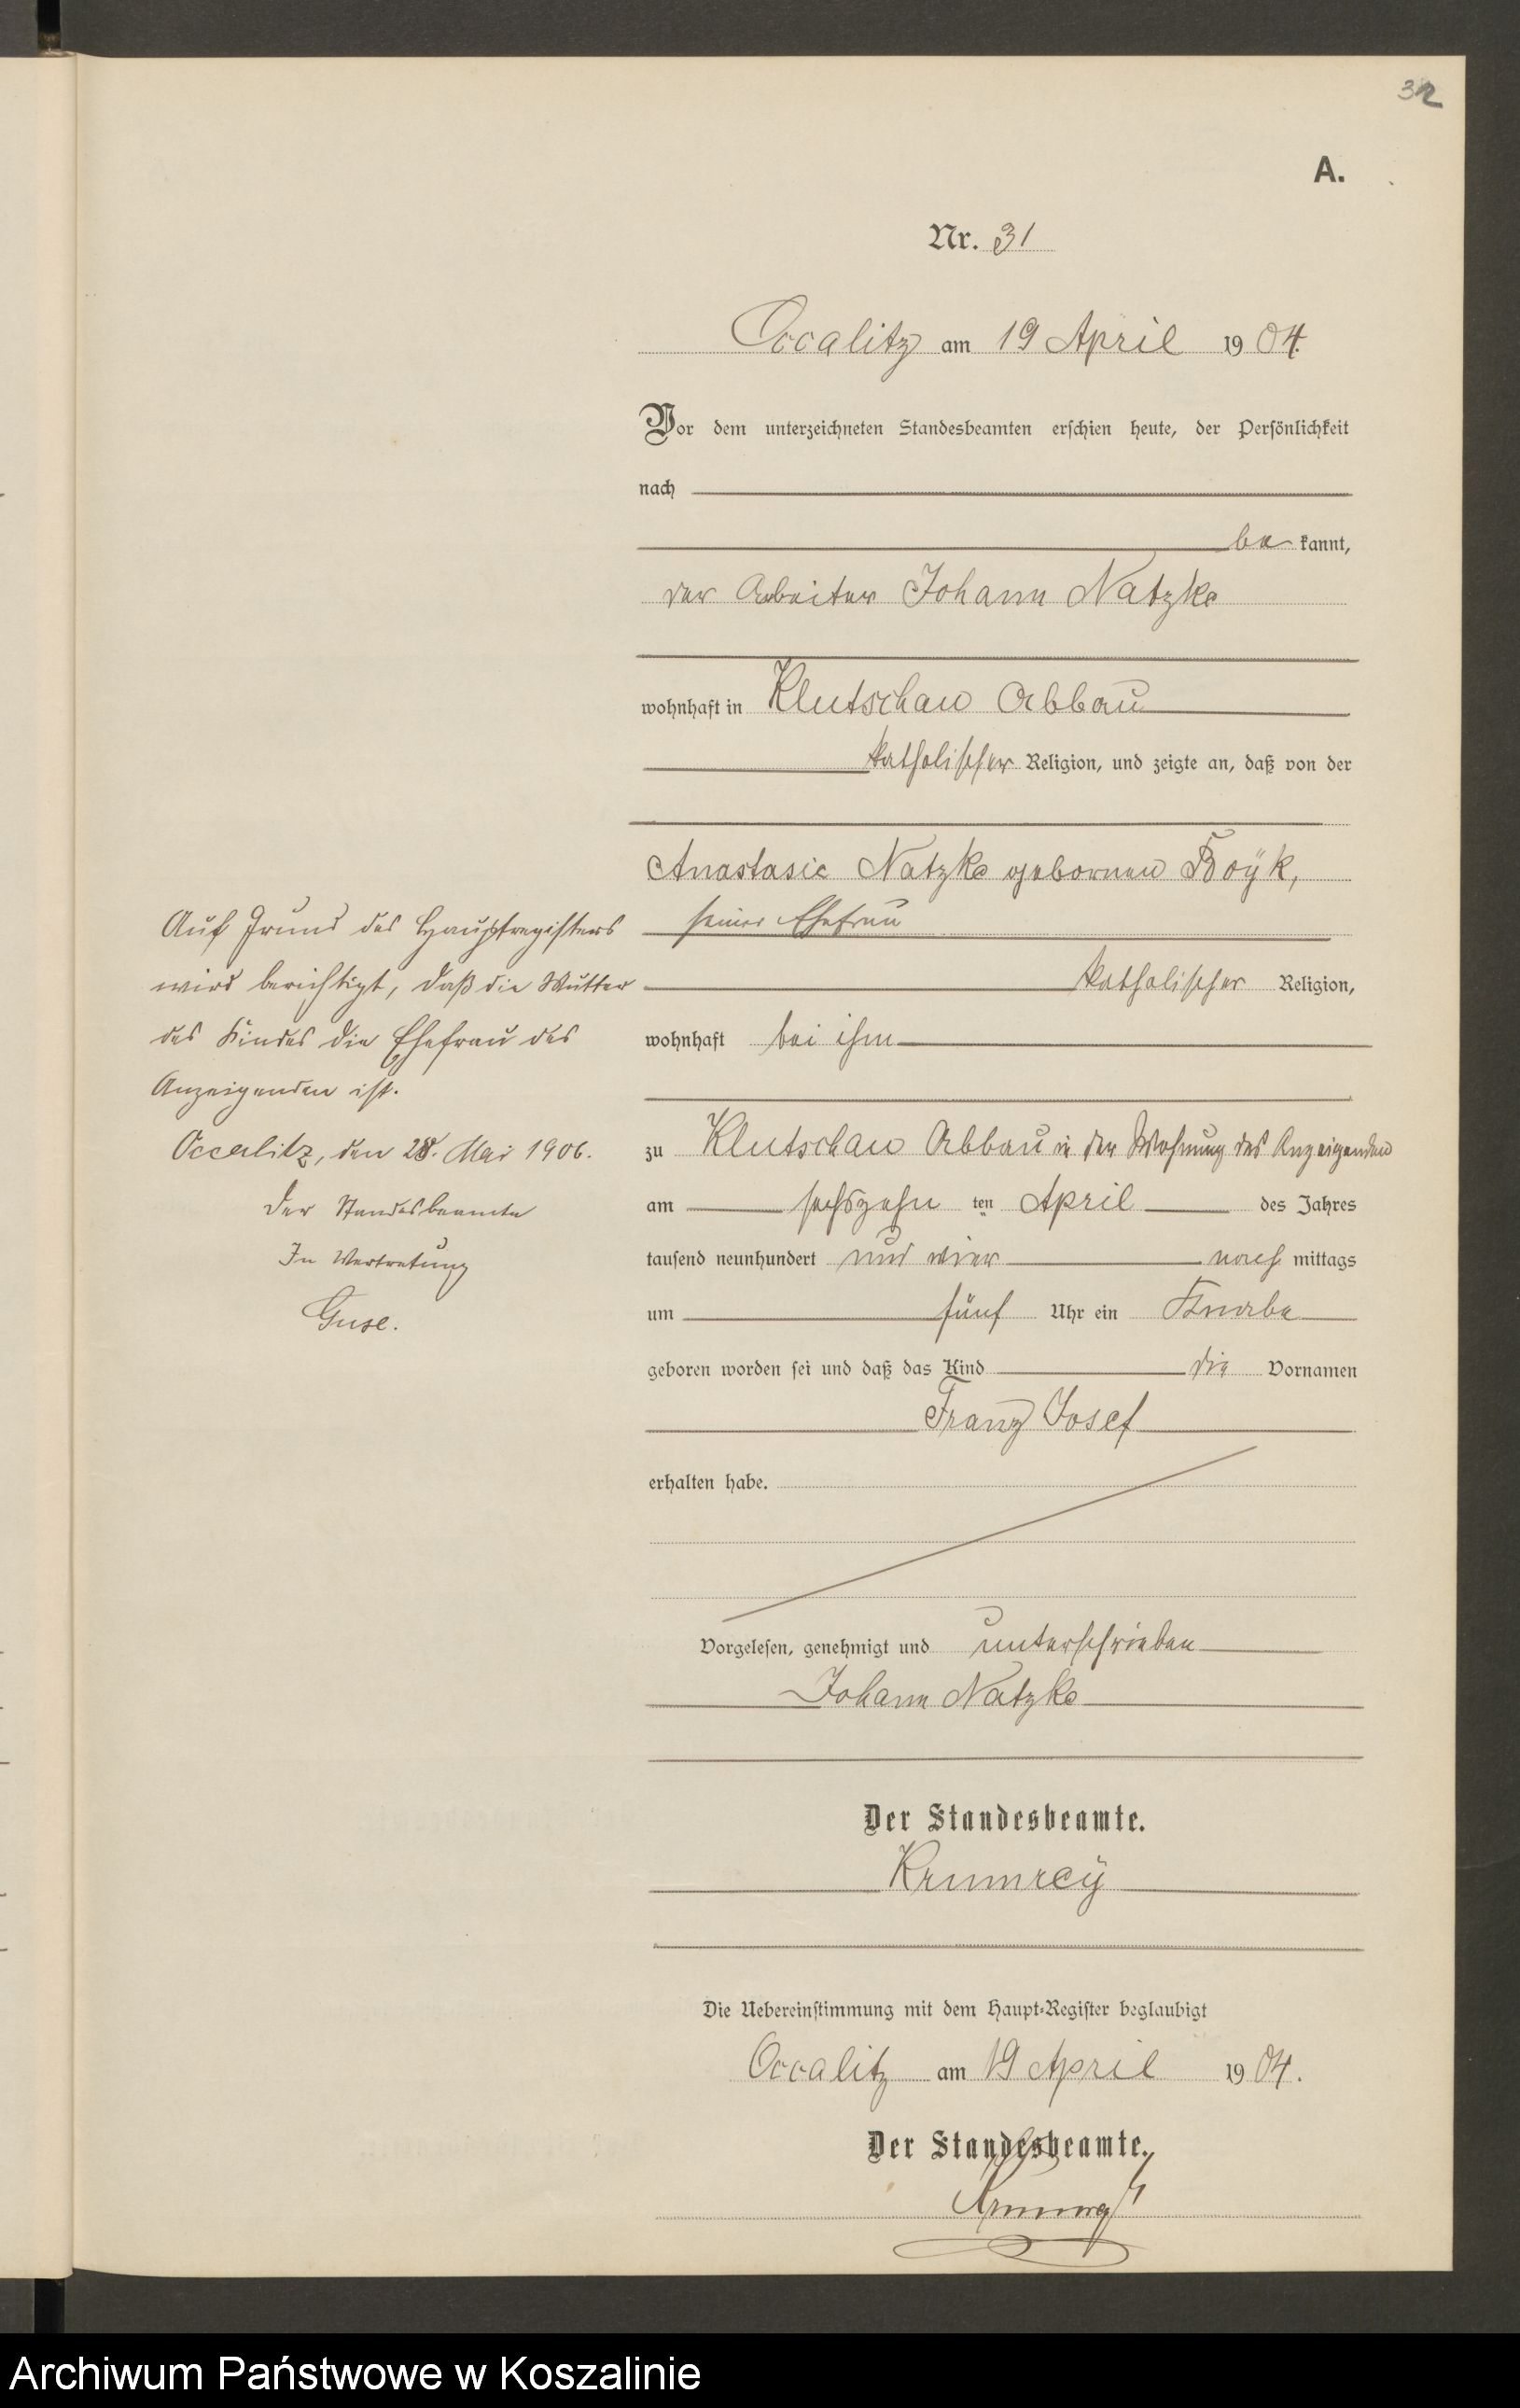 32
A.
Nr. 31
Occalitz am 19 April 1904.
Vor dem unterzeichneten Standesbeamten erschien heute, der Persönlichkeit
nach
be kannt,
der Arbeiter Johann Natzke
wohnhaft in Klutschau Abbau
katholischer Religion, und zeigte an, daß von der
Anastasia Natzke gebornen Boÿk,
seiner Ehefrau
katholischer Religion,
wohnhaft bei ihm
zu Klutschau Abbau in der Wohnung des Anzeigenden
am sechszehn ten April des Jahres
tausend neunhundert und vier nach mittags
um fünf Uhr ein Knabe
geboren worden sei und daß das Kind die Vornamen
Franz Josef
erhalten habe.
Vorgelesen, genehmigt und unterschrieben
Johann Natzke
Der Standesbeamte.
Krumreÿ
Die Uebereinstimmung mit dem Haupt-Register beglaubigt
Occalitz am 19 April 1904.
Der Standesbeamte.
Krumreÿ
Auf Grund des Hauptregisters
wird berichtigt, daß die Mutter
des Kindes die Ehefrau des
Anzeigenden ist.
Occalitz, den 28. Mai 1906.
Der Standesbeamte
In Vertretung
Guse.
Archiwum Państwowe w Koszalinie